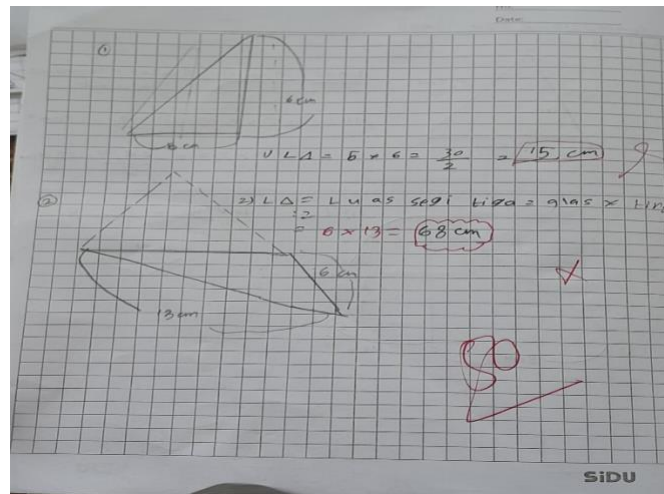 Date:
①
6 cm
1) L Δ = 5 x 6 = 30/2 = 15 cm
② 2) L Δ = Luas segi tiga = alas x
:2
= 6 x 13 = 68 cm
6 cm
13 cm
80
SiDU